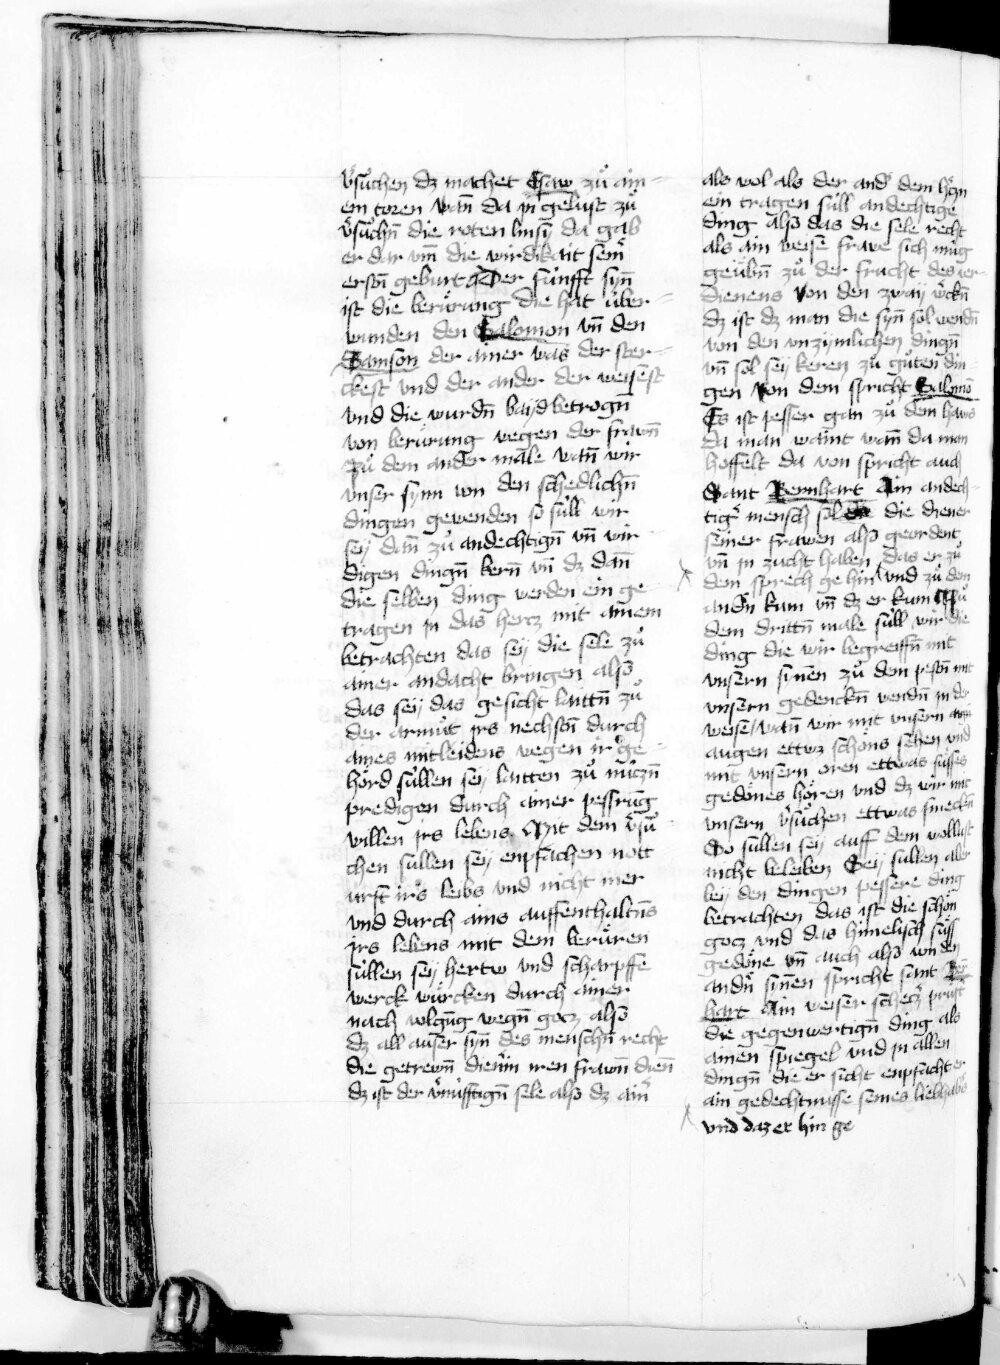 v̈sůchen dz machet Esaw zů ain=
em toren wan̄ da in gelust zů
v̈sůchn̄ die roten linsy̆ da gab
er dar vm̄ die wirdikait sein̄
erstn̄ geburt Der fünfft syn̄
ist die berürung die hat über=
wunden den Salomon vn̄ den
Samson der ainer was der ster=
ckest vnd der ander der weisest
vnd die wurdn̄ baijd betrogn̄
von berürung wegen der frawn̄
Zů dem ander male wan̄ wir
vnser synn von den schedlichn̄
dingen gewenden so süll wir
seij dan̄ zů andechtign̄ vn̄ wir=
digen dingn̄ kern̄ vn̄ dz dan̄
die selben ding werden ein ge
tragen in das hercz mit ainem
betrachten das seij die sele zů
ainer andacht bringen also
das seij das gesicht laittn̄ zů
der armůt irs nechstn̄ durch
aines mitleidens wegen ir ge=
hörd süllen seij laitten zů nüczn̄
predigen durch ainer pessrūg
willen irs lebens Mit dem v̈sů=
chen süllen seij enpfachen nott
urft irs leibs vnd nicht mer
vnd durch ains auffenthaltn̄s
irs lebens mit dem berüren
süllen seij hertw vnd scharpffe
werck würcken durch ainer
nach volgūg wegn̄ gocz also
dz all ausser syn̄ des menschn̄ recht
die getrewn̄ diener iren frawn̄ dien̄
dz ist der v̈nüfftign̄ sele also dz ain̄
als wol als der and̄ dem hczn
ein tragen süll andechtige
ding also das die sele recht
als ain weise frawe sich müg
geübn̄ zů der frucht des ver=
dienens Von den zwaij v̈ckn̄
dz ist dz man die syn̄ sol wendn̄
von den vnzymlichen dingn̄
vn̄ sol seij keren zů gůten din=
gen Von dem spricht Salomō
Es ist pesser gan zů dem haws
da man waint wan̄ da man
hoffelt da von spricht auch
Sant Bernhart Ain andech=
tigr̄ mensch sol die diener
seiner frawen also geordent
vn̄ in zucht haben das er zů
dem sprech ge hin vnd zů dem
andn̄ kum vn̄ dz er kum Zů
dem drittn̄ male süll wir die
ding die wir begreiffn̄ mit
vnsern synen zů den pestn̄ mit
vnsern gedenckn̄ wendn̄ in der
weise wan̄ wir mit vnsern
augen ettwz schöns sehen vnd
mit vnsern oren ettwas süsses
gedönes hören vnd dz wir mit
vnsern v̈sůchen ettwas smeckn̄
So süllen seij auff dem wollust
nicht beleiben Seij süllen aber
beij den dingen pessere ding
betrachten das ist die schön
gocz vnd das himelisch süss
gedöne vn̄ auch also von den
andn̄ sinnen spricht sant Bern̄
hart Ain weiser schecz prüft
die gegenwertign̄ ding als
ainen spiegel vnd in allen
dingn̄ die er sicht enpfächt er
ain gedechtnisse seines liebhabs
vnd daz er hin ge